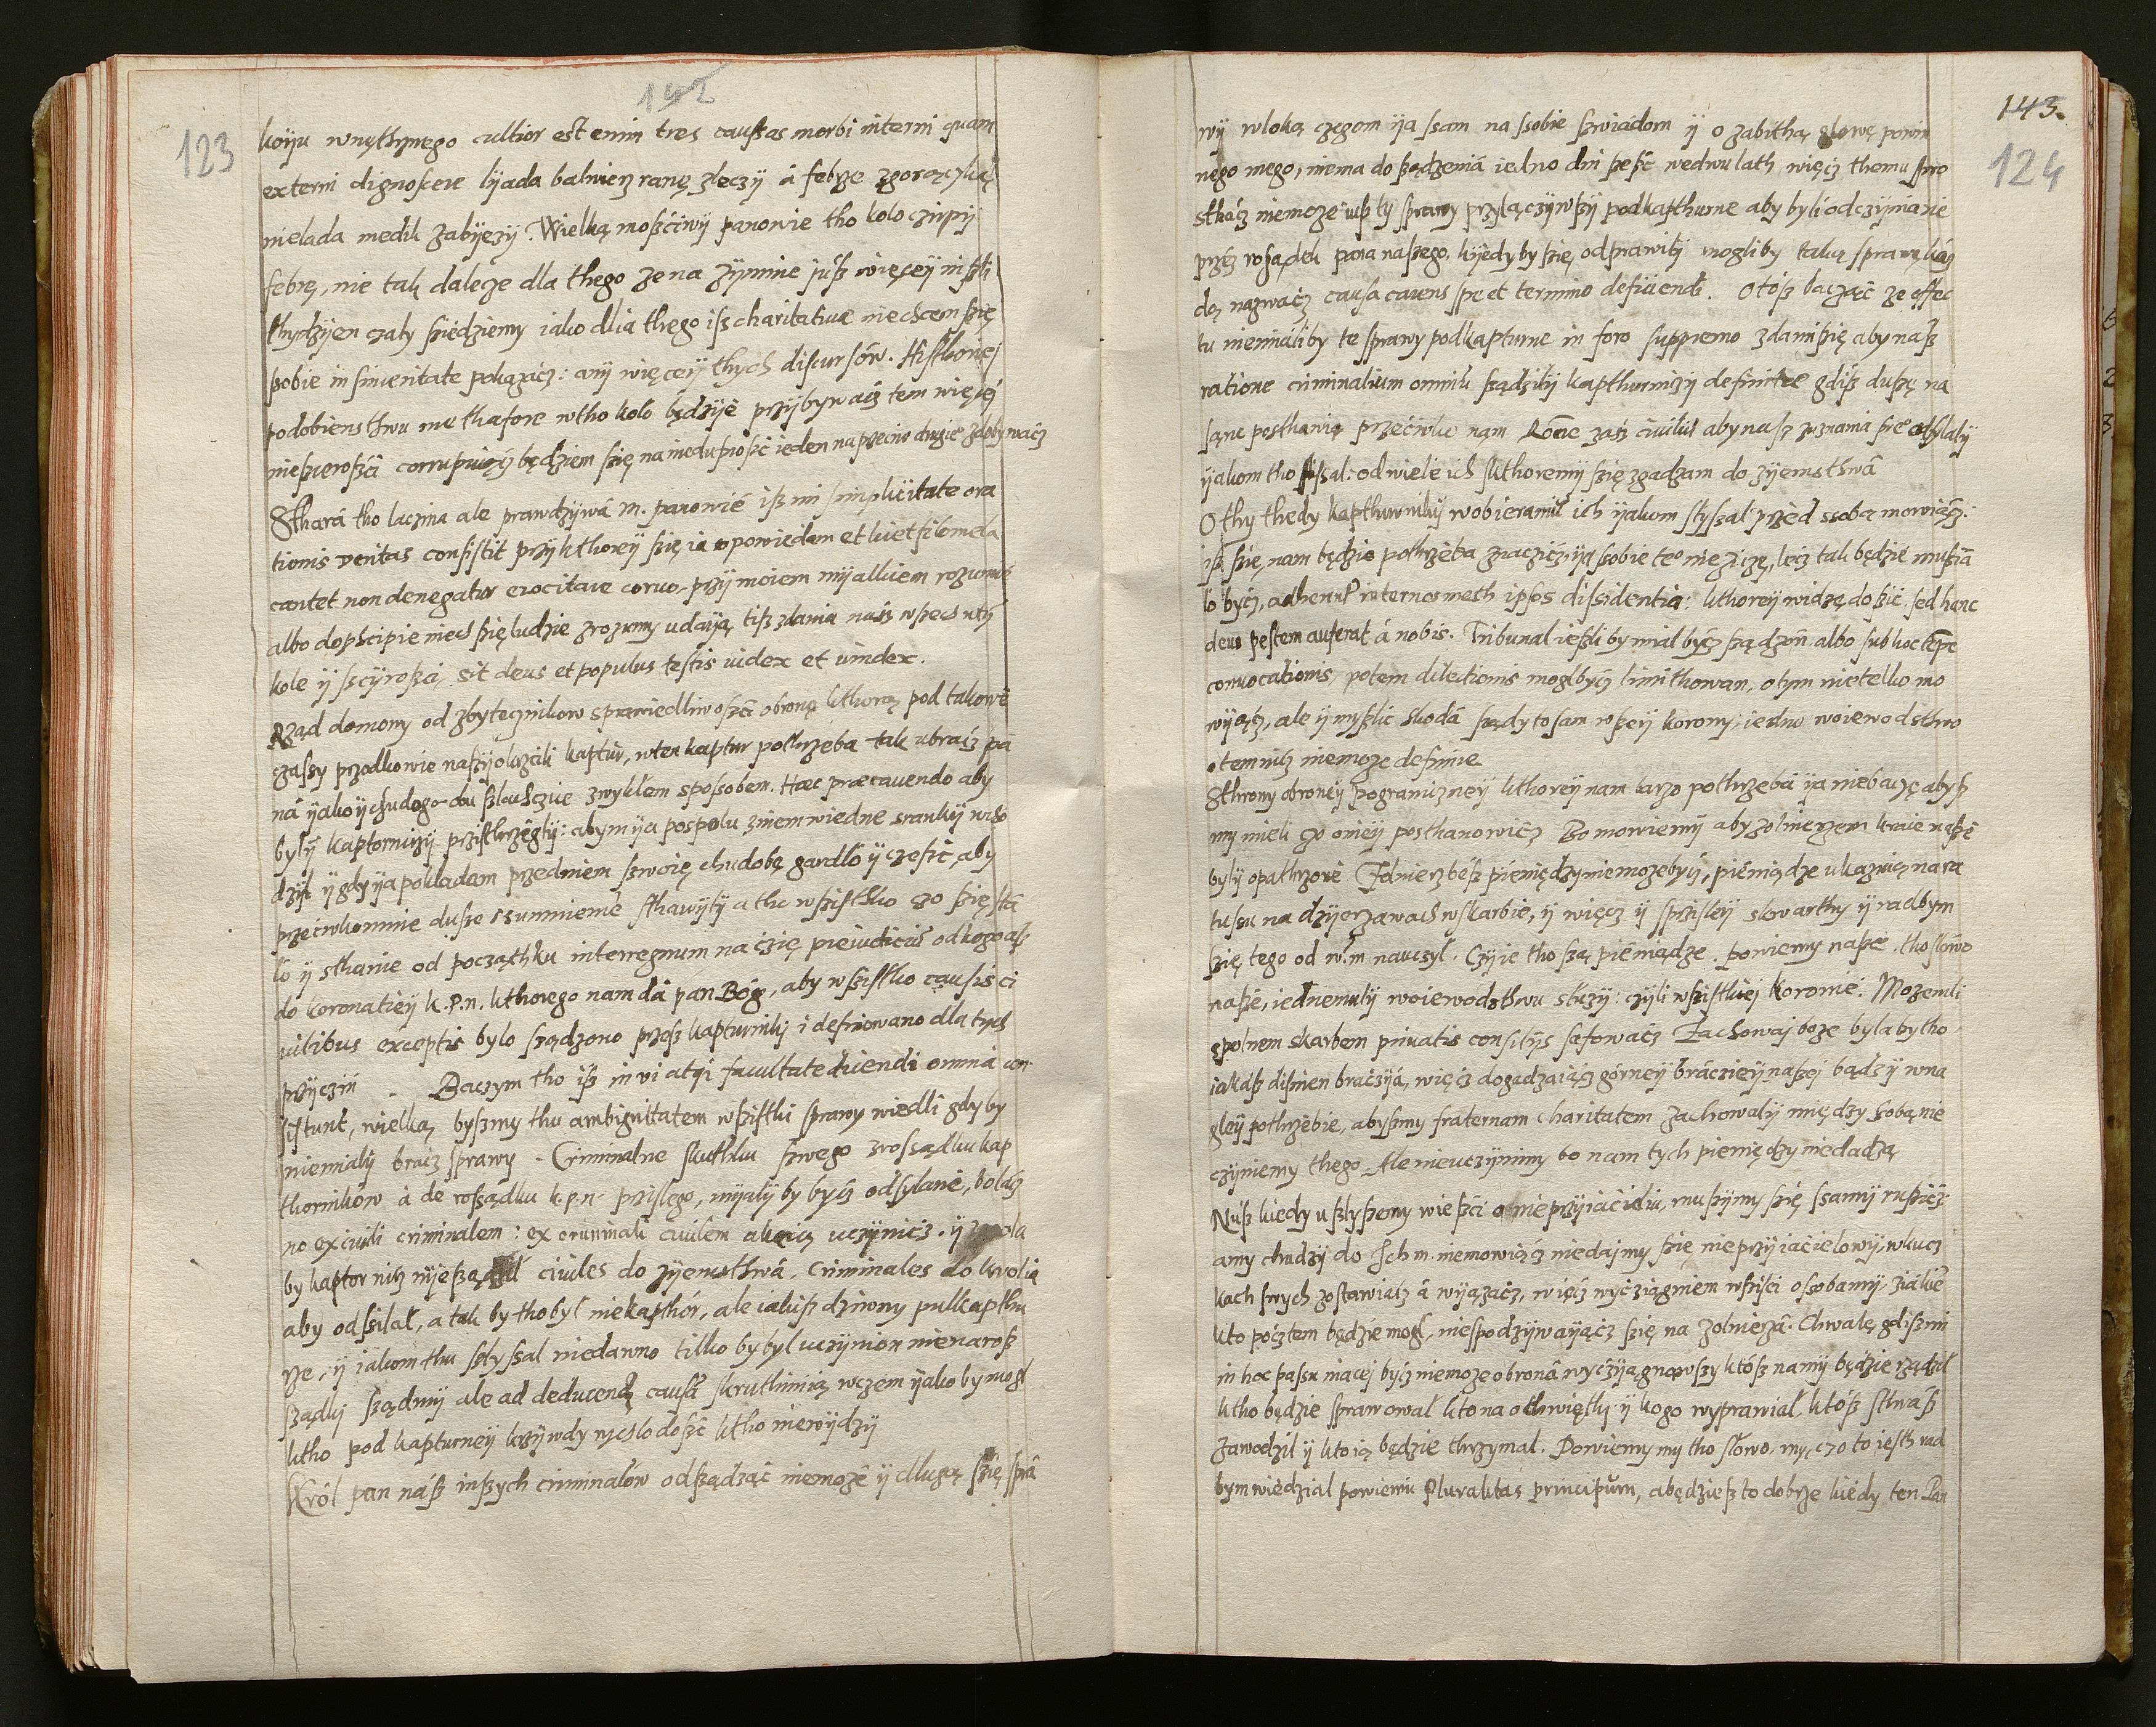 142
123
koyu wnęthrznego cultior est enim tres caussas morbi interni quam
externi dignoscere lyada balwierz ranę zleczy á febrze zgorączką
nielada medik zabyezy. Wielką mośćiwy panowie tho kolo czirpy
febrę, nie tak dalecze dla thego ze na zymnie júsz więczey niszli
thydzijen czały sziedziemy iako dlia thego isz charitatiue niechcem szię
sobie in sinceritate pokązacz: any więcey thych discursów. Histhoriej
podobiensthwu methafore wtho kolo będzye przybywacz tem więcéj
nieszczerośći corrumpuiącz będziem szię na nieduszność ieden naprzeciw drugie zdobywacz
Sthará tho laczina ale prawdzywá m. panowié isz mi simplicitate ora
tionis veritas consistit przy kthorey się ia opowiedam et licet filomela
cantet non denegatur crocitare coruo, przy moiem myalkiem rozumie
albo dopscipie niech szię ludzie zrozumy udaią, tisz zdania nász wszech wtý
kole ÿ szczyrośći, sit deus et populus testis iudex et uindex.
Rząd domowy od zbytecznikow sprawiedliwosći obronę kthorą pod takowe
czassy przodkowie naszy okrzcili kaptúr, wten kaptur pothrzeba tak ubraćz pa
ná yako y chudego dbu szlachczice zwykłem sposobem. Hæc præcauendo aby
były kaptorniczy przisthrzegly: abym ya pospolu zniem wiedne sranky wcho
dzył y gdy ya pokladam przedniem szwoię chudobę gardlo y czesić, aby
przećiwkomnie dusze szumnieme sthawyly a thu wszisthko czo szię sta
lo y sthanie od początku interregnum na czię pieiudiciũ od kogo asz
do koronatiey k.p.n. kthorego nam dá pan Bóg, aby wszisthko causis ci
uilibus exceptis bylo szędzono przesz kapturniky i defniowano dla tych
przyczin. Baczym tho isz in vi atqi facultate dicendi omnia con
sistunt, wielką byszmy thu ambiguitatem wszistki sprawy wiedli gdyby
niemiały bracz sprawy. Criminalne skuthku szwego zrossądku kap
thornikôw á de rossądku k.p.n. przislego, myalyby bycz odsylane, bolácz
no ex ciuili criminalem: ex criminali ciuilem akcią uczynicz. y
by kaptornisz nyeszą ciuiles do zyemsthwá, criminales do krolia
aby odssilał, a tak by tho był niekapthór, ale iakisz dziwny pulkapthu
rze, y iakom thu słyssal niedawno tilko by byl uczynion nienarosz
sządky sządnÿ ale ad deducendã causã skruthinią wczem yako by mogł
ktho pod kapturney krzywdy nyeslodość ktho niewydzy
Król pan nász inszych criminalów odsządząc niemoze y długą szię sprá
143.
124
wy wloką czegom ya ssam na ssobie szwiadom y o zabithą głowę powin
nego mego, niema do sządzeniá iedno dni sześć wedwu lath więcz themu spro
stkácz niemoze usz ty sprawy przyłączywszy podkapthurne aby byli odczymanie
przéz rossądek pana naszego, kyedyby szię odprawily mogliby taką sprawę káz
dą nazwacz causa carens spe et termino definiend. Otósz bacząc ze effec
tu niemialiby te sprawy podkapturne in foro suppremo zdamiszię aby nasz
ratione criminalium omniũ szędzily kapthurniczy definitæ gdisz duszę na
sząne posthawią przećiwku nam Rône zász ciuiliũ aby nasz zeznania szie odsylaly
yakom tho pissal: od wiele ich s kthoremy się zgadzam do zyemsthwá
O thy thedy kapthurniky wobieraniũ ich yakom słyszal przed ssobą mowiącz.
isz szię nam będzie pothrzeba zraczicz, ya ssobie te° nie ziczę, lecz tak będzie musia
lo bycz, adhenus internos meth ipsos dissidentia: kthorey widzę doszic sed hanc
deus pestem auferat á nobis. Tribunal ieszliby mial bycz sządzon albo sub hoc tẽpe
conuocationis, potem dilectionis moglbycz limithowan, o tym nietelko mo
wyącz, ale y myszlic skodá sządy to sam wszey korony, iedno woiewodsthwo
o tem nisz niemoze definie
Sthrony obroney pogranizney kthorey nam barzo pothrzebá ya niebaczę abysz
my mieli czo oniey posthanowicz Bo mowiemy aby zolnierzem kraie nasze
były opathrzone Zolnierz bész pieniędzy niemoze bycz, pieniądze ukaznią na ra
tussu na dzyerzawach wskarbie, y więcz y sprzisley skwarthy y radbym
szię tego od w.m nauczył. Czyie tho są pieniądze. powiemy nasze. tho słowo
nasze, iednemuly woiewodsthwu służy: czyli wszistkiej koronie. Mozemli
spolnem skarbem priuatis consilÿs safowácz Zachowaj boze bylaby tho
iakász dismenbraczyá, więcz dogadzaiącz górney bráczieÿ naszej bądzÿ wna
gley pothrzebie, abyszmy fraternam charitatem zachowaly między sobą nie
czyniemy thego. Ale nieuczynimy bo nam tych pieniędzy niedadzą
Núsz kiedy uslyszemy wieści o nieprzyiacielu, musiymy szię ssamy ruszicz
amy chudzy do Ich m. niemowiącz niedajmy szię nieprzyiaćielowÿ, wkucz
kach swych zostawiacz á wyązacz, więcz wyciągniem wszisci osobamy, ziákie
kto pócztem będzie mogł, niespodzywayącz się na zolnierzá. Chwalę gdiszmi
in hoc passu iniacej bycz niemoze obroná wyciyągnąwszy któsz namy będzie rządzil
ktho będzie sprawował kto na othwiętky y kogo wyprawiał, któsz sthrász
zawodzil y kto ią będzie thrzymal. Powiemy my tho słowo, my, czo to iesth rad
bym wiedzial powiemu Pluralitas principum, abędziesz to dobrze kiedy ten Pan